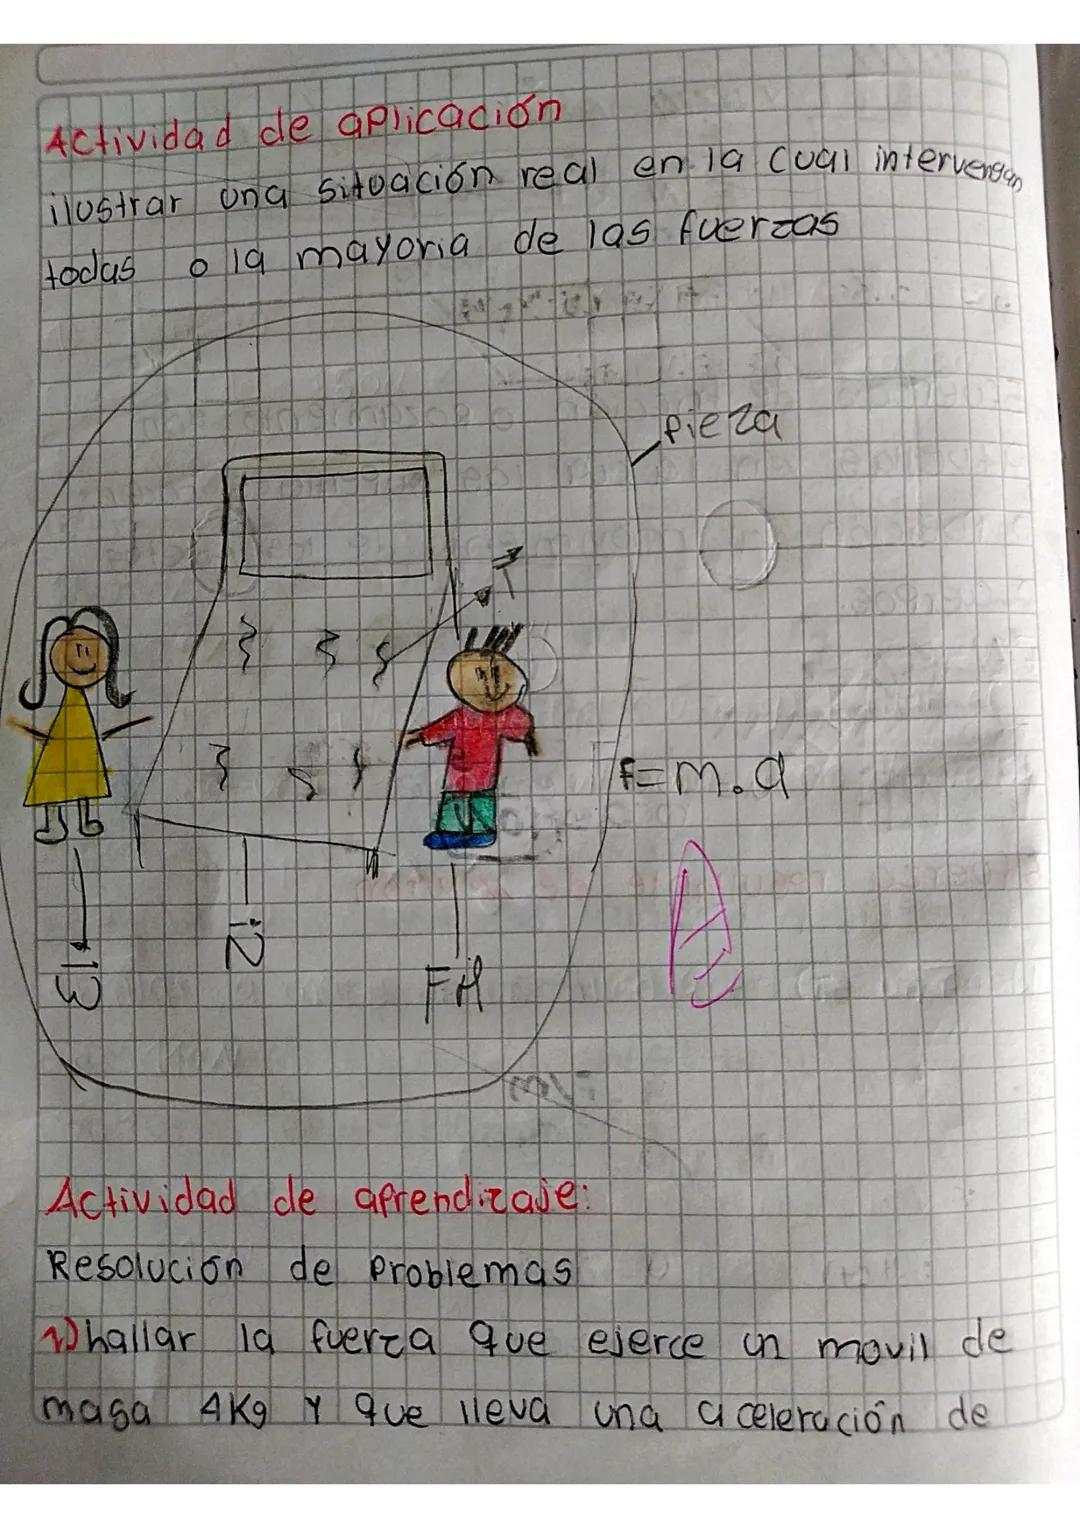 Actividad de aplicación
ilustrar una situación real en la cual intervengan
todas o la mayoria de las fuerzas
Pieza
T
f=m.a
W
N
FH
Actividad de aprendizaje:
Resolución de Problemas
1) hallar la fuerza que ejerce un movil de
masa 4Kg Y que lleva una aceleración de